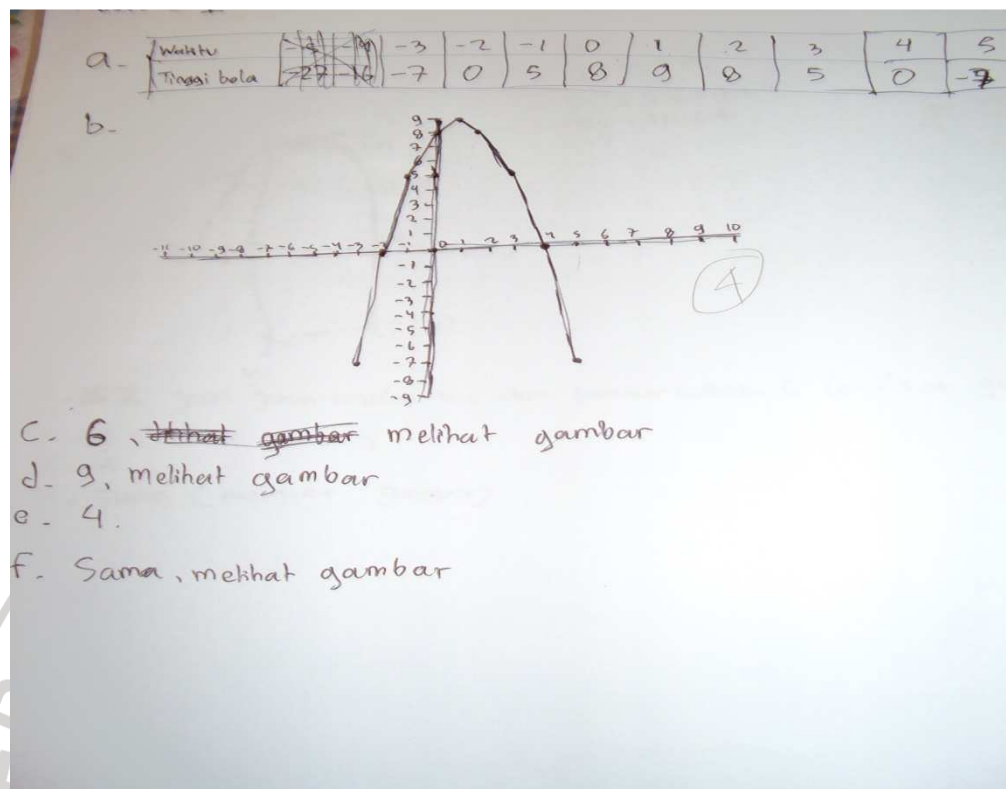 a.
Waktu -3 -2 -1 0 1 2 3 4 5
Tinggi bola -27 -16 -7 0 5 8 9 8 5 0 -7
b.
9
8
7
6
5
4
3
2
1
-11 -10 -9 -8 -7 -6 -5 -4 -3 -2 -1 0 1 2 3 4 5 6 7 8 9 10
-1
-2
-3
-4
-5
-6
-7
-8
-9
4
c. 6, lihat gambar melihat gambar
d. 9, melihat gambar
e. 4.
f. Sama, melihat gambar